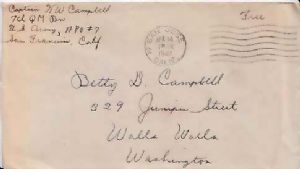 Captain W W Campbell
7th QM Bn
U S Army, APO #7
San Francisco, Calif
Free
SAN JOSE
CALIF.
Betty D. Campbell
329 Juniper Street
Walla Walla
Washington